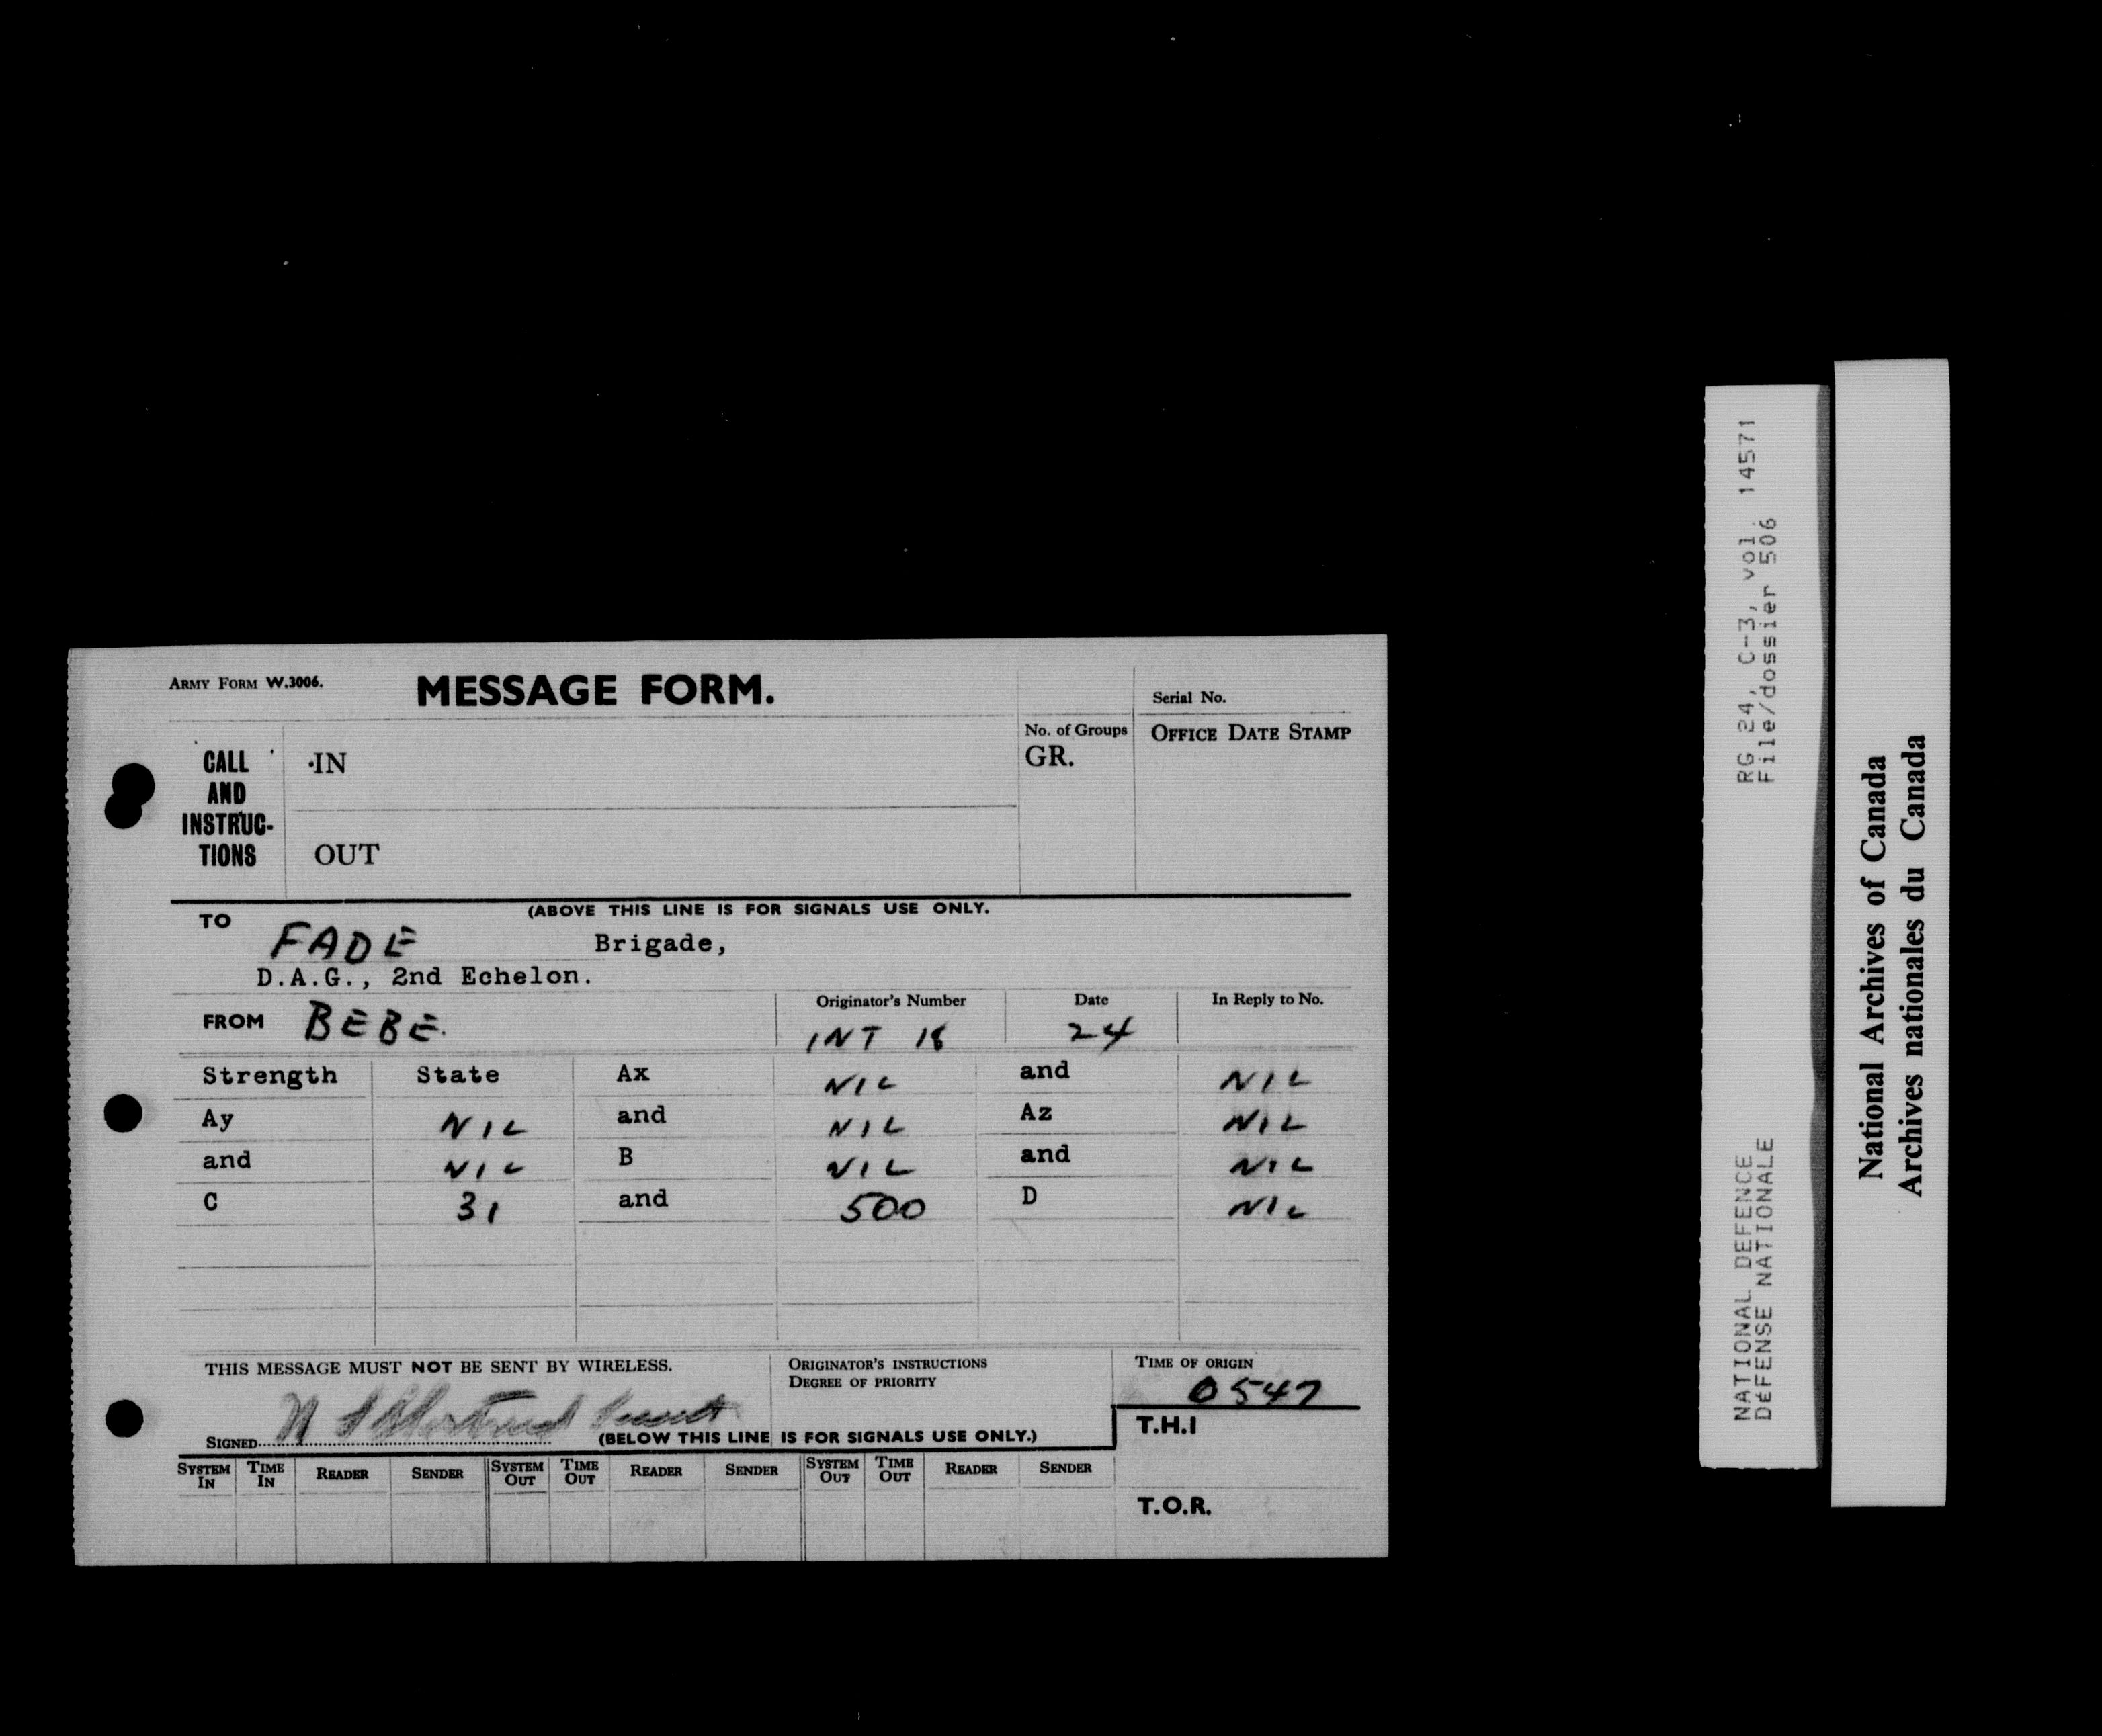 ARMY FORM W.3006.
MESSAGE FORM.
Serial No.
CALL AND INSTRUC-TIONS
IN
No. of Groups
GR.
OFFICE DATE STAMP
OUT
(ABOVE THIS LINE IS FOR SIGNALS USE ONLY.
TO
FADE Brigade,
D.A.G., 2nd Echelon.
FROM BEBE.
Originator's Number
INT 18
Date
24
In Reply to No.
Strength State Ax NIL and NIL
Ay NIL and NIL Az NIL
and NIL B NIL and NIL
C 31 and 500 D NIL
THIS MESSAGE MUST NOT BE SENT BY WIRELESS.
ORIGINATOR'S INSTRUCTIONS
DEGREE OF PRIORITY
TIME OF ORIGIN
0547
SIGNED
(BELOW THIS LINE IS FOR SIGNALS USE ONLY.)
T.H.I
SYSTEM IN TIME IN READER SENDER SYSTEM OUT TIME OUT READER SENDER SYSTEM OUT TIME OUT READER SENDER
T.O.R.
NATIONAL DEFENCE RG 24, C-3, vol. 14571
DÉFENSE NATIONALE File/dossier 506
National Archives of Canada
Archives nationales du Canada